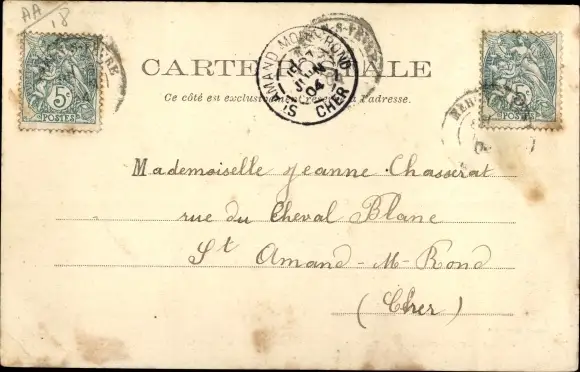 AA
18
5c
POSTES
ST AMAND MONT-ROND
JUIN
04
CHER
5c
POSTES
CARTE POSTALE
Ce côté est exclusivement réservé à l'adresse.
Mademoiselle Jeanne Chasserat
rue du Cheval Blanc
St Amand-M-Rond
(Cher)